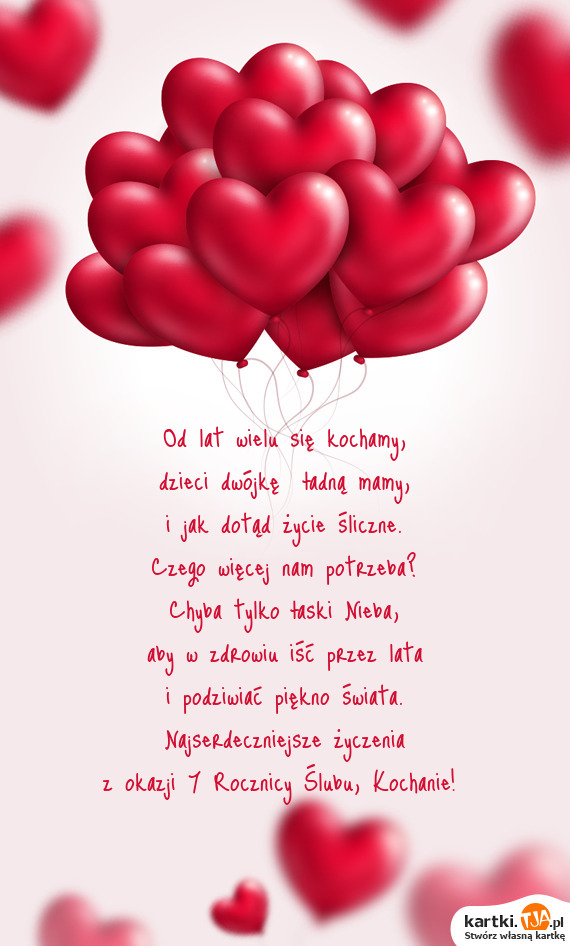 Od lat wielu się kochamy,
dzieci dwójkę ładną mamy,
i jak dotąd życie śliczne.
Czego więcej nam potrzeba?
Chyba tylko łaski Nieba,
aby w zdrowiu iść przez lata
i podziwiać piękno świata.
Najserdeczniejsze życzenia
z okazji 7 Rocznicy Ślubu, Kochanie!
kartki.TJA.pl
Stwórz własną kartkę